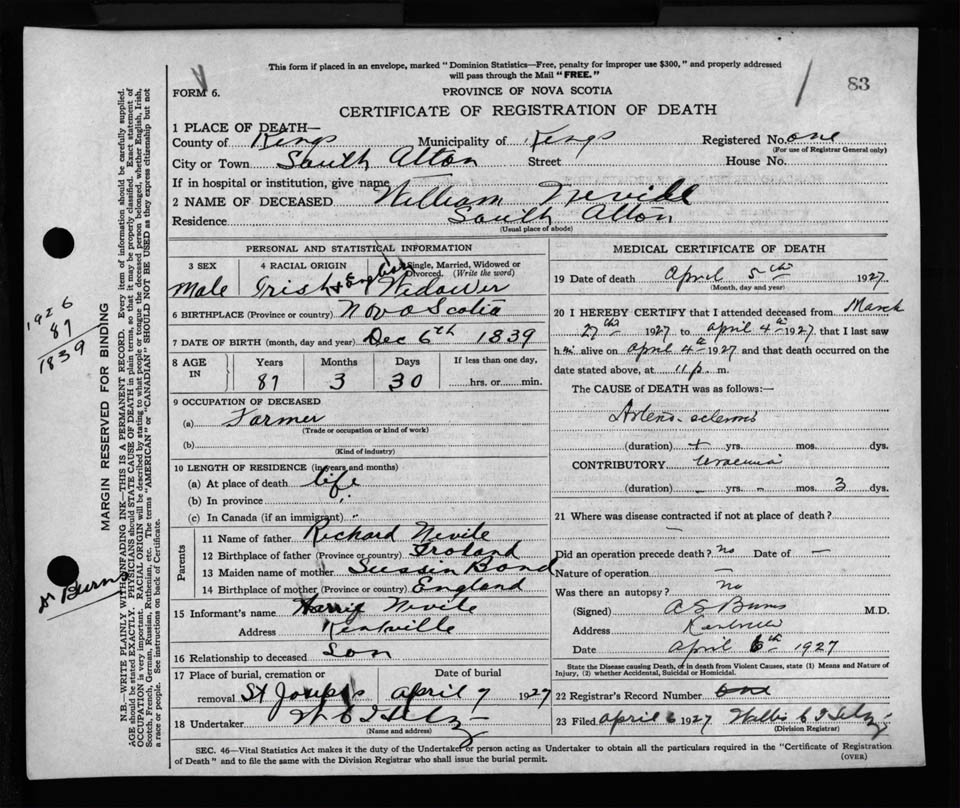 This form if placed in an envelope, marked "Dominion Statistics—Free, penalty for improper use $300," and properly addressed
will pass through the Mail "FREE."
FORM 6.
PROVINCE OF NOVA SCOTIA
83
CERTIFICATE OF REGISTRATION OF DEATH
1 PLACE OF DEATH—
County of Kings Municipality of Kings Registered No. one
(For use of Registrar General only)
City or Town South Alton Street House No.
If in hospital or institution, give name
2 NAME OF DECEASED William
Residence South Alton
(Usual place of abode)
PERSONAL AND STATISTICAL INFORMATION
3 SEX 4 RACIAL ORIGIN Single, Married, Widowed or
Divorced. (Write the word)
Male Irish + English Widower
6 BIRTHPLACE (Province or country) Nova Scotia
7 DATE OF BIRTH (month, day and year) Dec 6th 1839
8 AGE IN Years Months Days If less than one day,
87 3 30 hrs. or min.
9 OCCUPATION OF DECEASED
(a) Farmer
(Trade or occupation or kind of work)
(b)
(Kind of industry)
10 LENGTH OF RESIDENCE (in years and months)
(a) At place of death life
(b) In province "
(c) In Canada (if an immigrant) "
Parents
11 Name of father Richard Nevile
12 Birthplace of father (Province or country) Ireland
13 Maiden name of mother Sussin Bond
14 Birthplace of mother (Province or country) England
15 Informant's name Harry Nevile
Address Kentville
16 Relationship to deceased Son
17 Place of burial, cremation or Date of burial
removal St Josephs April 7 1927
18 Undertaker
(Name and address)
MEDICAL CERTIFICATE OF DEATH
19 Date of death April 5th 1927
(Month, day and year)
20 I HEREBY CERTIFY that I attended deceased from March
27th 1927 to April 4th 1927, that I last saw
him alive on April 4th 1927 and that death occurred on the
date stated above, at 11 p. m.
The CAUSE of DEATH was as follows:—
Arterio-sclerosis
(duration) + yrs. mos. dys.
CONTRIBUTORY uraemia
(duration) - yrs. - mos. 3 dys.
21 Where was disease contracted if not at place of death?
—
Did an operation precede death? no Date of —
Nature of operation —
Was there an autopsy? no
(Signed) A S Burns M.D.
Address Kentville
Date April 6th 1927
State the Disease causing Death, or in death from Violent Causes, state (1) Means and Nature of
Injury, (2) whether Accidental, Suicidal or Homicidal.
22 Registrar's Record Number one
23 Filed April 6 1927
(Division Registrar)
SEC. 46—Vital Statistics Act makes it the duty of the Undertaker or person acting as Undertaker to obtain all the particulars required in the "Certificate of Registration
of Death" and to file the same with the Division Registrar who shall issue the burial permit.
(OVER)
1926
87
1839
Dr Burns
MARGIN RESERVED FOR BINDING
N.B.—WRITE PLAINLY WITH UNFADING INK—THIS IS A PERMANENT RECORD. Every item of information should be carefully supplied.
AGE should be stated EXACTLY. PHYSICIANS should STATE CAUSE OF DEATH in plain terms, so that it may be properly classified. Exact statement of
OCCUPATION is very important. RACIAL ORIGIN will be described by stating to what people or tongue the deceased person belonged, whether English, Irish,
Scotch, French, German, Russian, Ruthenian, etc. The terms "AMERICAN" or "CANADIAN" SHOULD NOT BE USED as they express citizenship but not
a race or people. See instructions on back of Certificate.